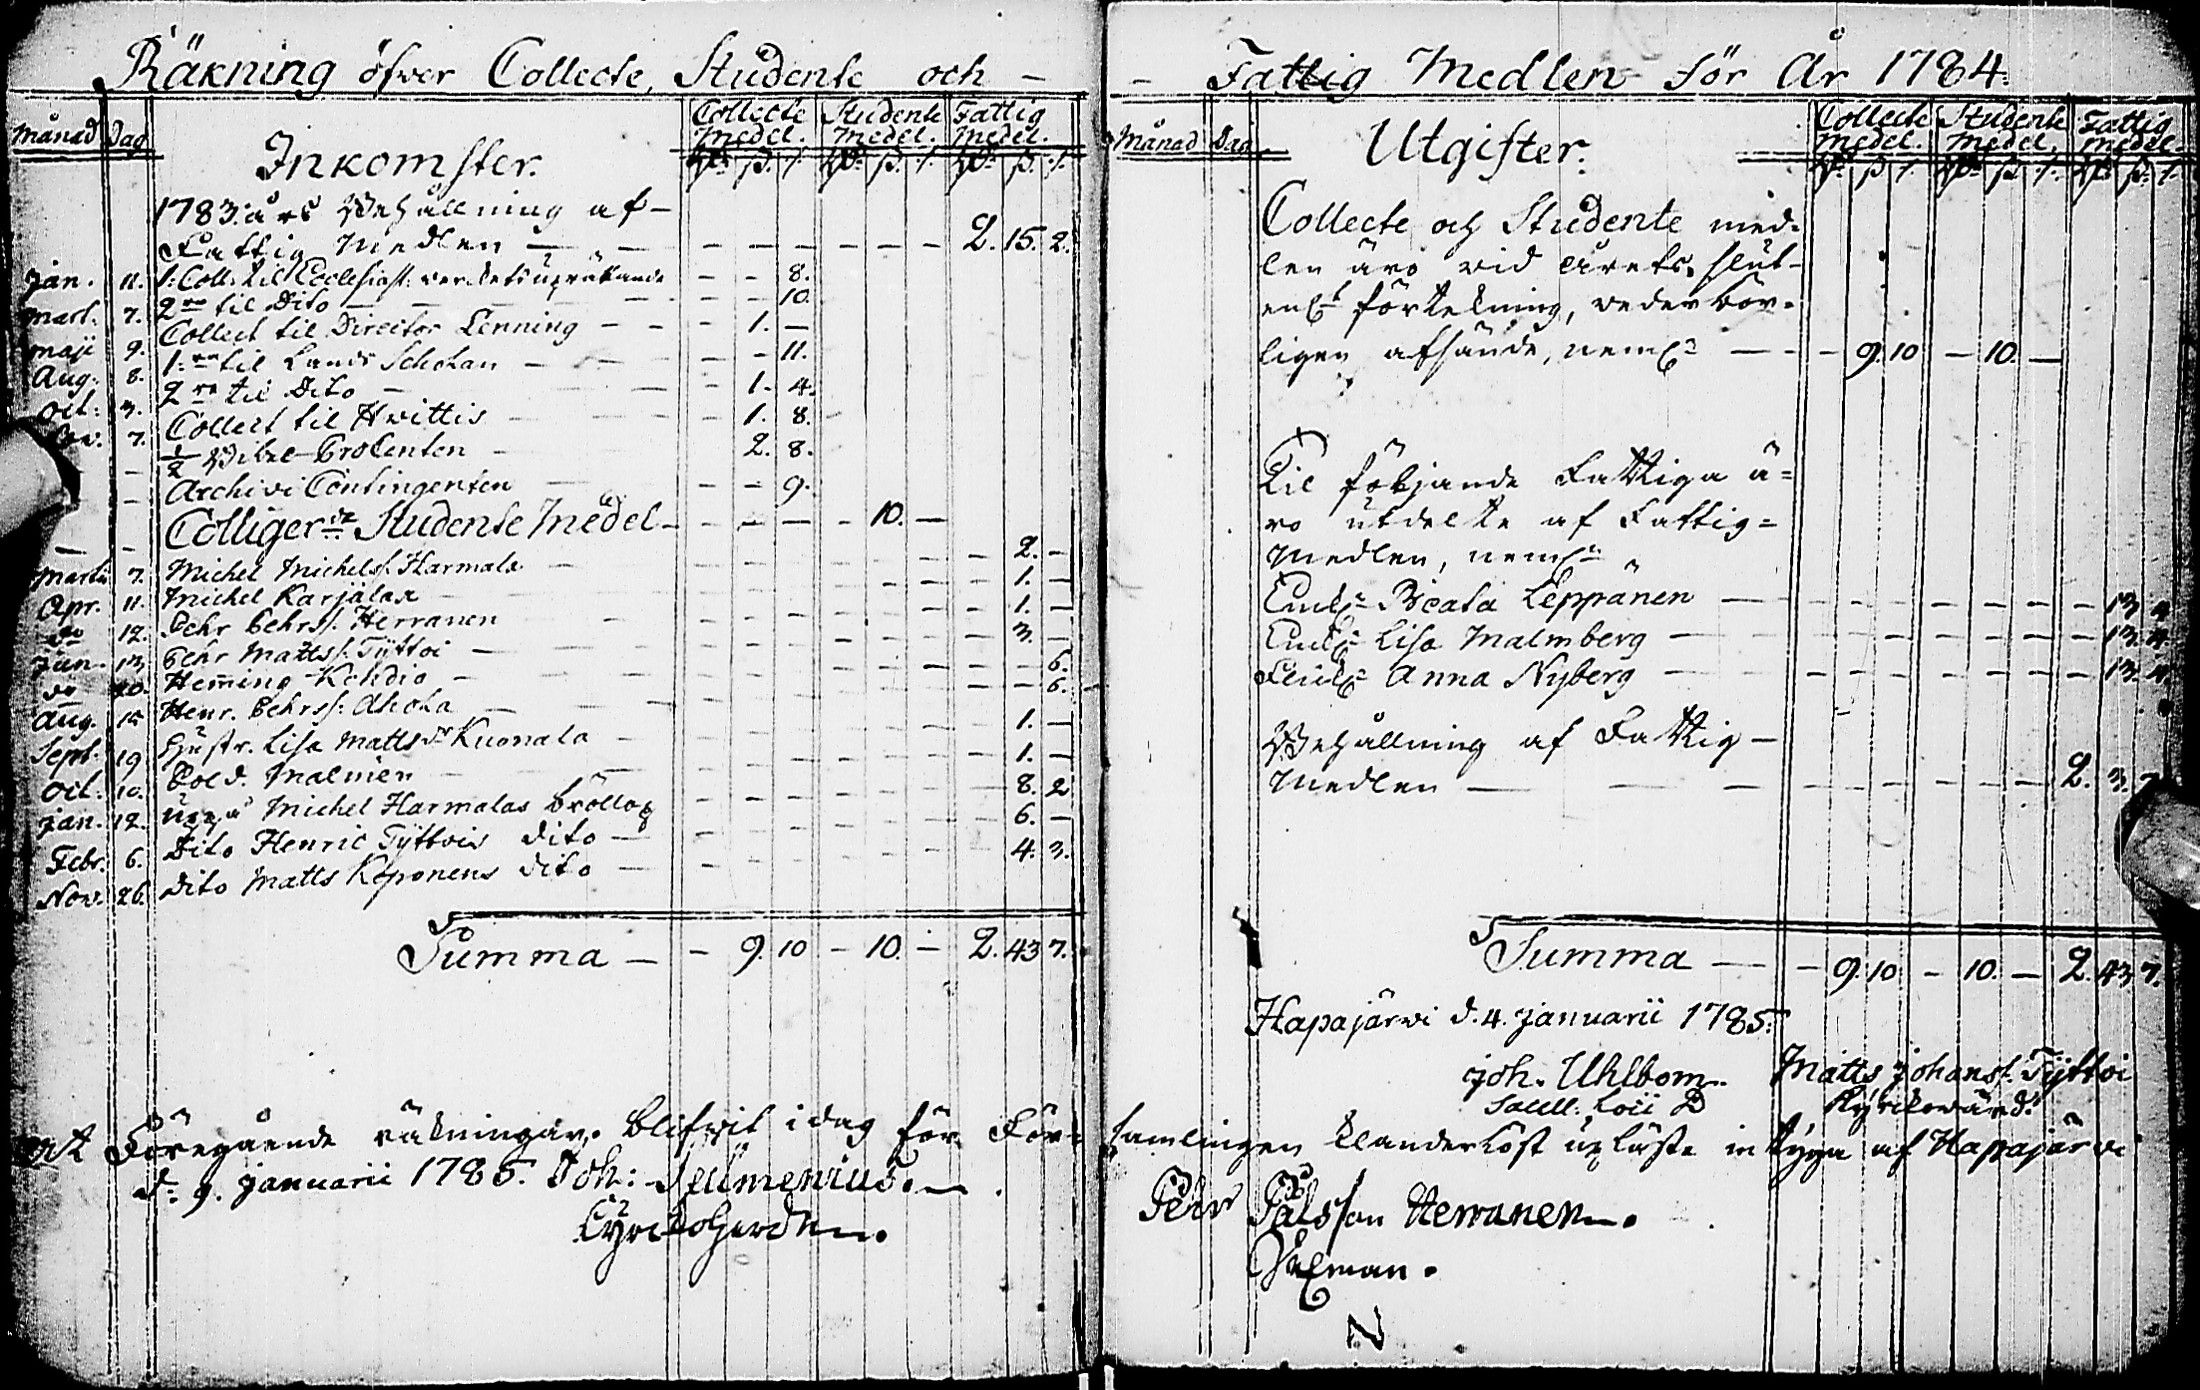 Räkning öfver Collecte, Studente och -
Månad Dag Inkomster. Collecte Medel. Studente Medel. Fattig Medel.
1783 års Behållning af -
Fattig Medlen - 2. 15. 2.
Jan. 11. 1: Coll. til Ecclesiast: verkets uprätande - - 8.
Mart. 7. 2:ra til Dito - - 10.
Maji 9. Collect til Director Lenning - 1. -
Aug. 8. 1:ra til Lands Scholan - - 11.
Oct. 3. 2:ra til Dito - 1. 4.
Nov. 7. Collect til Hvittis - 1. 8.
- - 1/2 Bibel Procenten - 2. 8.
- - Archivi Contingenten - - 9.
- - Colliger:de Studente Medel - - 10. -
Martii 7. Michel Michelss. Harmala - 2. -
Apr. 11. Michel Karjalax - 1. -
do 12. Pehr Pehrss. Herranen - 1. -
Jun. 13. Pehr Mattss. Tÿttoi - 3. -
do 20. Heming Kohdio - - 6.
Aug. 15 Henr. Pehrss: Ahola - - 6.
Sept. 19 Hustr. Lisa Mattsdr Kuonala - 1. -
Oct. 10. Sold. Malmen - 1. -
Jan. 12. uppå Michel Harmalas bröllop 8. 2
Febr. 6. Dito Henric Tÿttois dito - 6. -
Nov. 26. dito Matts Koponens dito - 4. 3.
Summa - - 9. 10 - 10. - 2. 43 7.
- Fattig Medlen för År 1784.
Månad Dag Utgifter. Collecte Medel. Studente Medel. Fattig Medel.
Collecte och Studente med-
len äro vid årets slut
förtekning, vederbör-
ligen afsände, neml: - - 9. 10 - 10. -
Til följande Fattiga ä-
ro utdelte af Fattig-
Medlen, neml:
Beata Leppänen - 13. 4
Lisa Malmberg - 13. 4.
Anna Nyberg - 13. 4
Behållning af Fattig -
Medlen - 2. 3. 7
Summa - - 9. 10 - 10. - 2. 43 7.
Hapajärvi d. 4. Januarii 1785.
Joh. Uhlbom. Matts Johanss. Tÿttoi
Sacell. Loci Kÿrckovärd.
At Föregående räkningar blifvit i dag för För-
samlingen klanderlöst upläste intÿga af Hapajärvi
d. 9. Januarii 1785. Joh:
Pehr Pålsson Herranen.